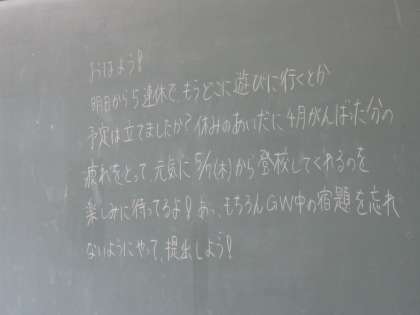 おはよう!
明日から5連休で、もうどこに遊びに行くとか
予定は立てましたか?休みのあいだに4月がんばった分の
疲れをとって、元気に5/7(木)から登校してくれるのを
楽しみに待ってるよ!あっ、もちろんGW中の宿題を忘れ
ないようにやって、提出しよう!